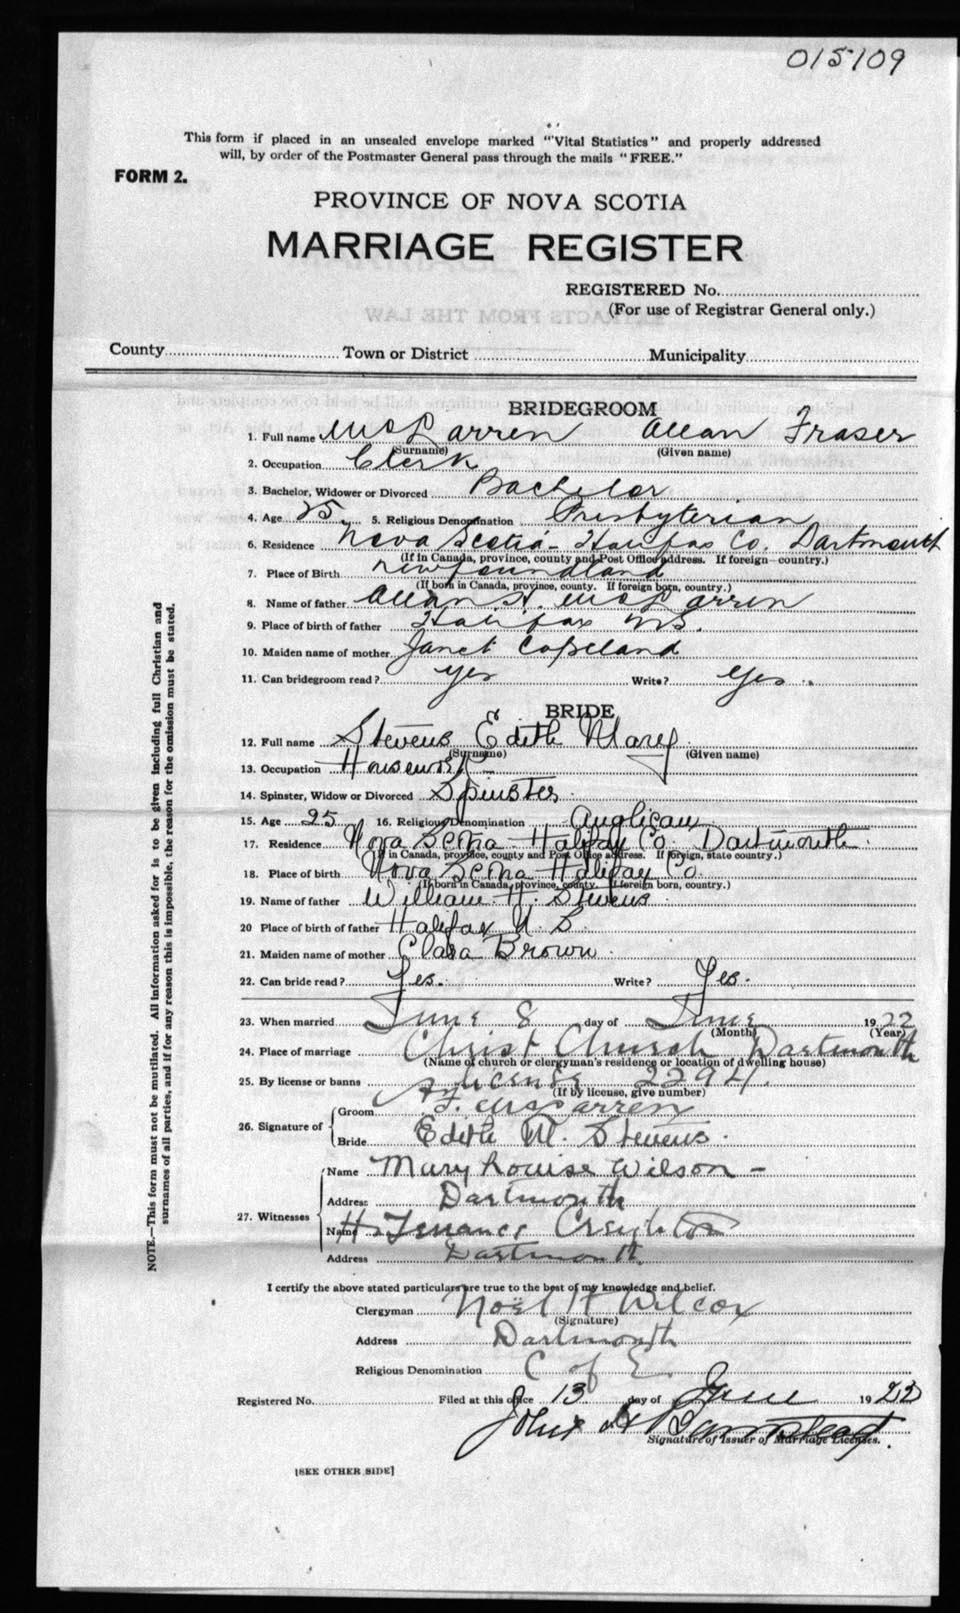 015109
This form if placed in an unsealed envelope marked "Vital Statistics" and properly addressed
will, by order of the Postmaster General pass through the mails "FREE."
FORM 2.
PROVINCE OF NOVA SCOTIA
MARRIAGE REGISTER
REGISTERED No.
(For use of Registrar General only.)
County Town or District Municipality
BRIDEGROOM
1. Full name McLarren Allan Fraser
(Surname) (Given name)
2. Occupation Clerk
3. Bachelor, Widower or Divorced Bachelor
4. Age 25 5. Religious Denomination Presbyterian
6. Residence Nova Scotia - Halifax Co. Dartmouth
(If in Canada, province, county and Post Office address. If foreign - country.)
7. Place of Birth Newfoundland
(If born in Canada, province, county. If foreign born, country.)
8. Name of father Allan H. McLarren
9. Place of birth of father Halifax N.S.
10. Maiden name of mother Janet Copeland
11. Can bridegroom read? yes Write? Yes
BRIDE
12. Full name Stevens Edith Mary
(Surname) (Given name)
13. Occupation Housework -
14. Spinster, Widow or Divorced Spinster
15. Age 25 16. Religious Denomination Anglican
17. Residence Nova Scotia Halifax Co. Dartmouth
If in Canada, province, county and Post Office address. If foreign, state country.)
18. Place of birth Nova Scotia Halifax Co.
(If born in Canada, province, county. If foreign born, country.)
19. Name of father William H. Stevens
20 Place of birth of father Halifax N. S.
21. Maiden name of mother Clara Brown
22. Can bride read? Yes. Write? Yes.
23. When married June 8 day of June 1922
(Month) (Year)
24. Place of marriage Christ Church Dartmouth
(Name of church or clergyman's residence or location of dwelling house)
25. By license or banns License 2294.
(If by license, give number)
26. Signature of Groom A. F. McLarren
Bride Edith M. Stevens.
27. Witnesses Name Mary Louise Wilson -
Address Dartmouth
Name H. Creighton
Address Dartmouth
I certify the above stated particulars are true to the best of my knowledge and belief.
Clergyman Noël H Wilcox
(Signature)
Address Dartmouth
Religious Denomination C of E.
Registered No. Filed at this office 13 day of June 1922
John
Signature of Issuer of Marriage Licenses.
[SEE OTHER SIDE]
NOTE.—This form must not be mutilated. All information asked for is to be given including full Christian and
surnames of all parties, and if for any reason this is impossible, the reason for the omission must be stated.